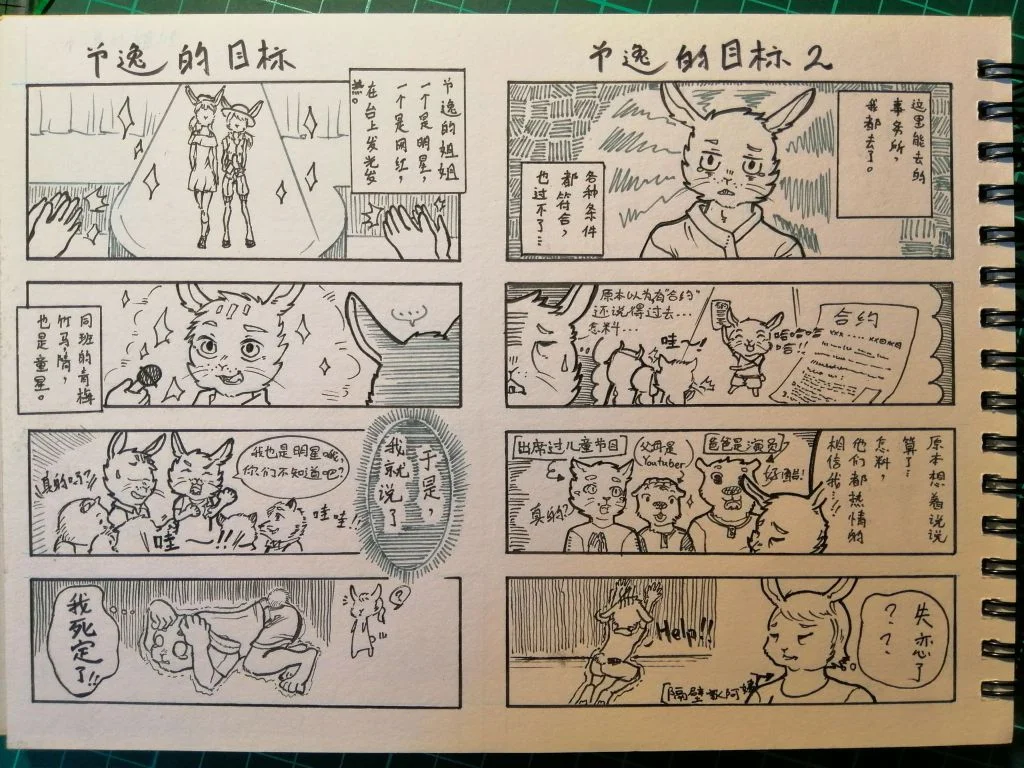 逸的目标
逸的姐姐
一个是明星，
一个是网红，
在台上发光发
热。
同班的青梅
竹马隋，
也是童星。
于是，
我就说了
我也是明星哦，
你们不知道吧?
真的吗??
哇~!!
哇!!
?
我死定了!!
逸的目标2
这里能去的
事务所，
我都去了。
各种条件
都符合，
也过不了…
原本以为有“合约”
还说得过去…
怎料…
哇~!!
哈哈哈哈
哈!!
合约
原本想着说说
算了…
怎料，
他们都热情的
相信我…!!
[爸爸是演员]
父母是
Youtuber
[出席过儿童节目]
真的?
失恋了
??
Help!!
[隔壁